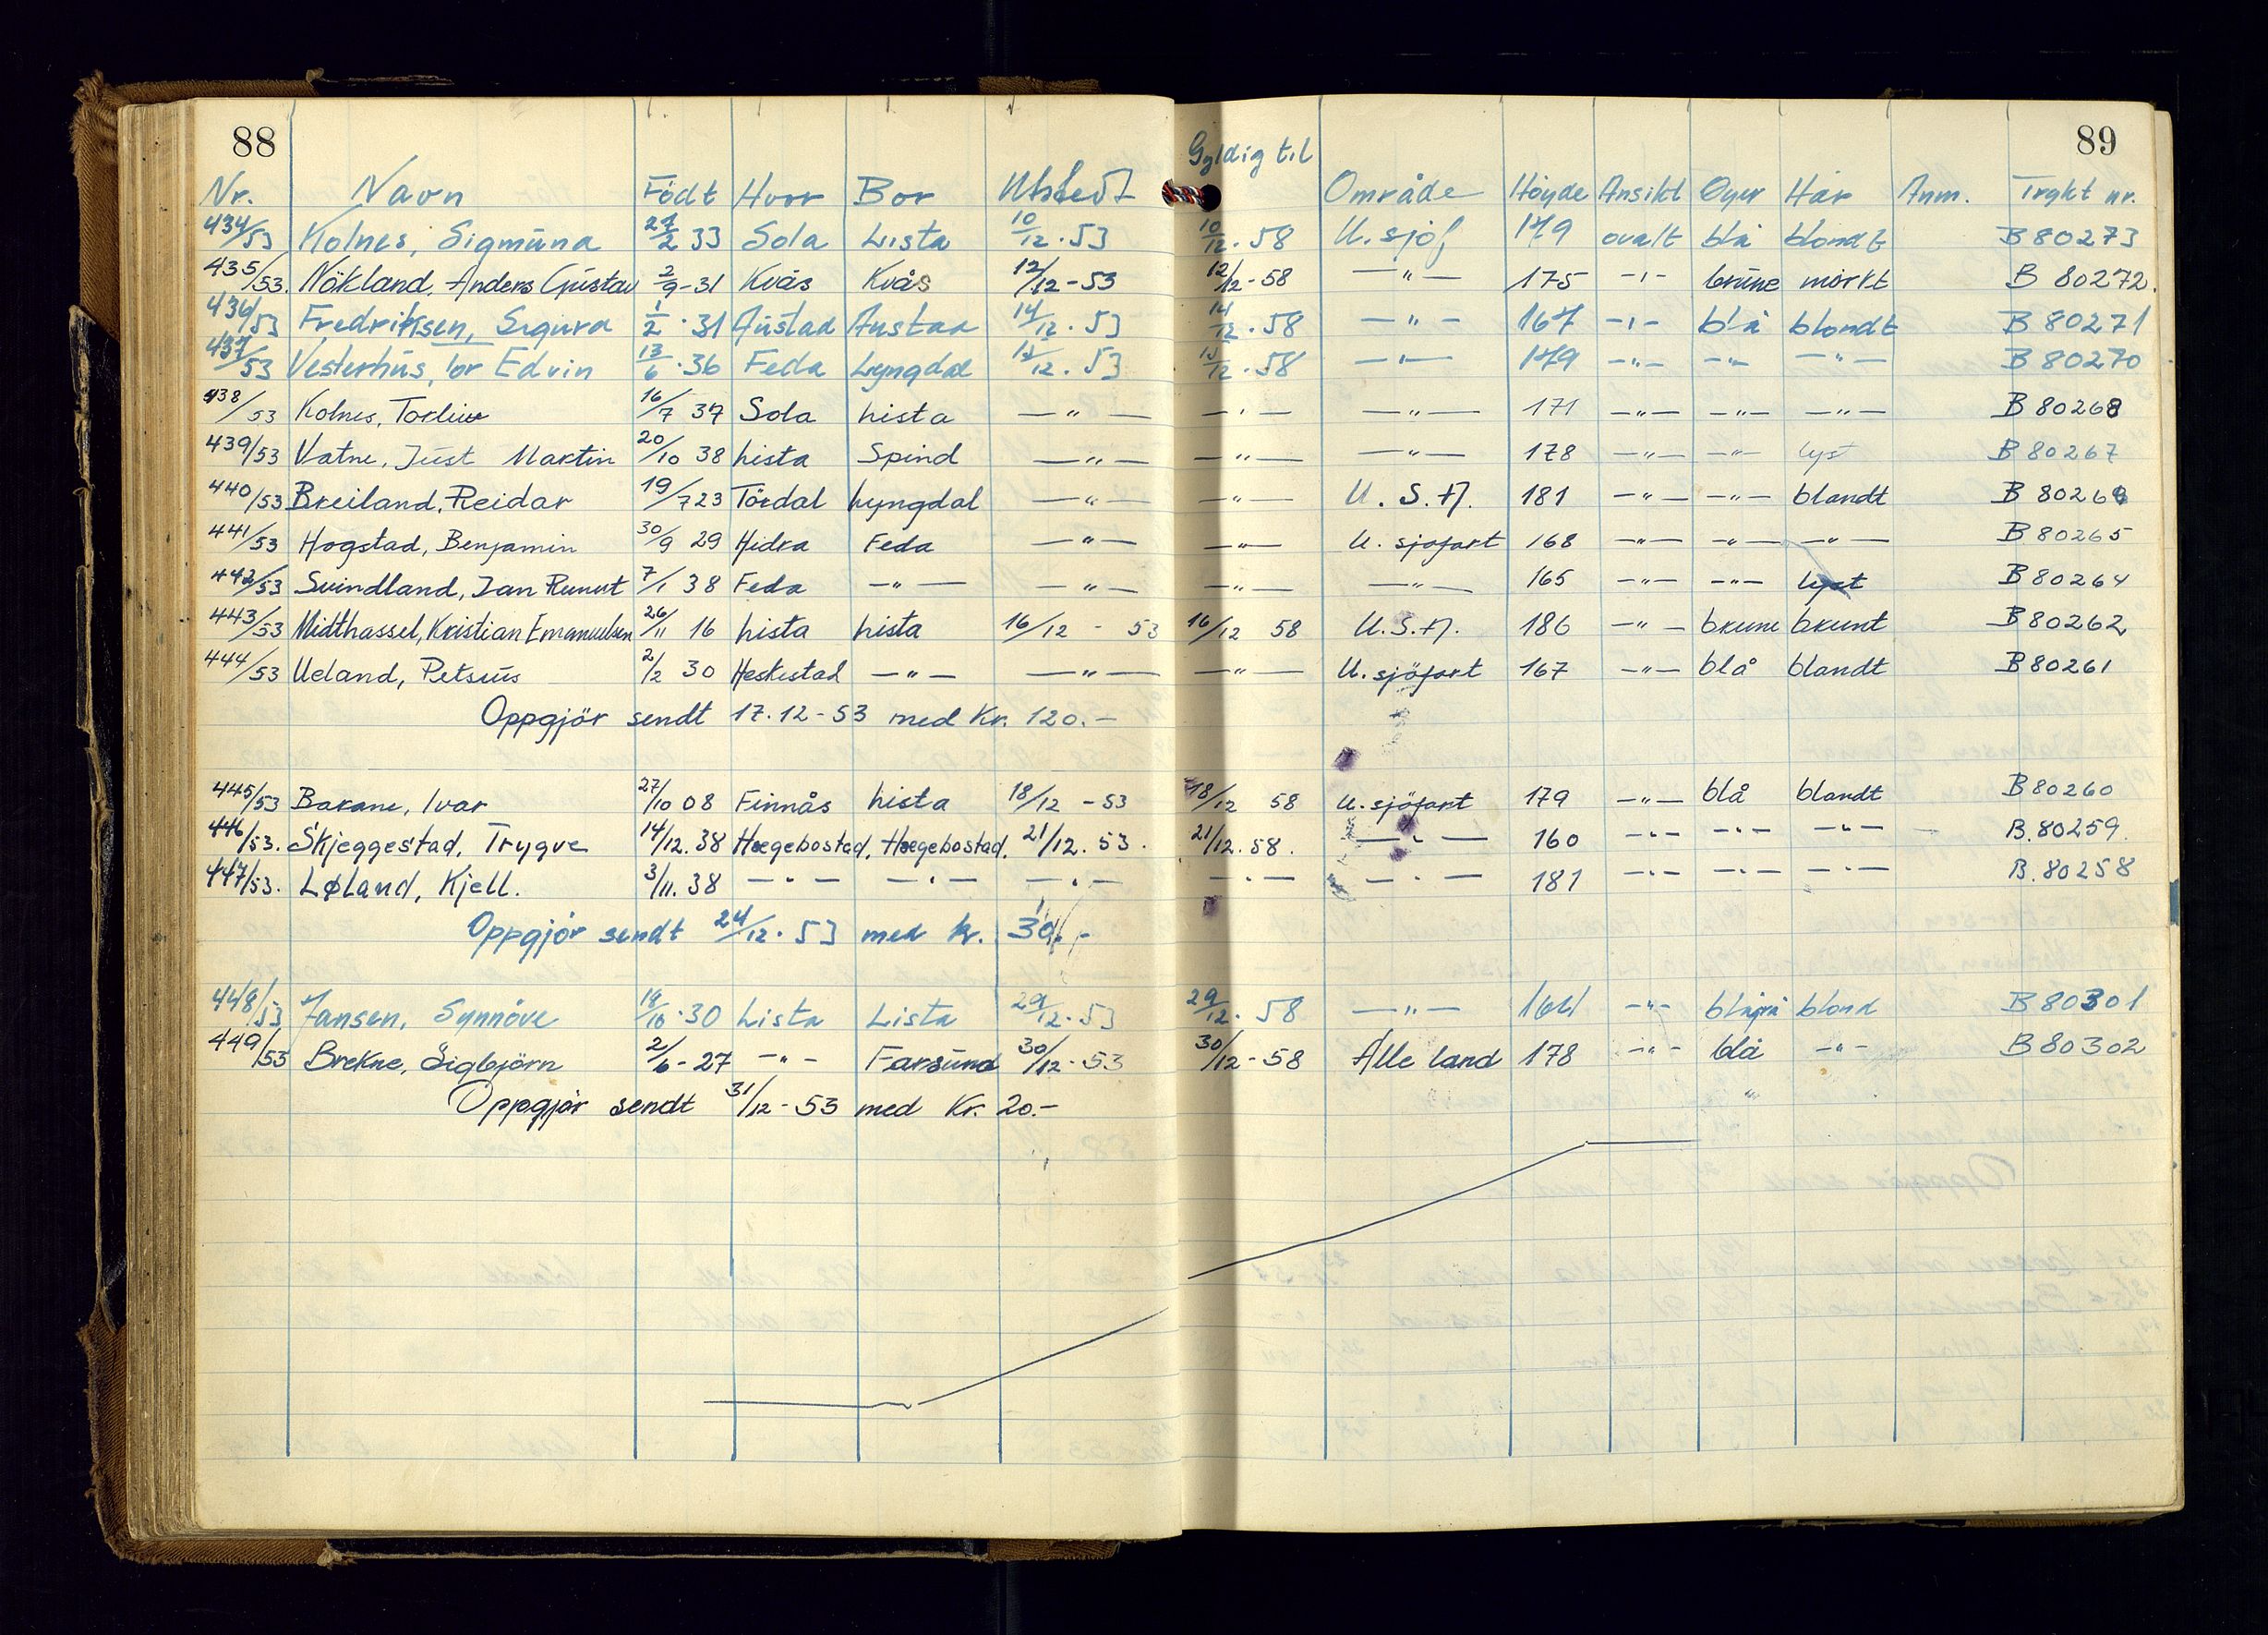 88 89
Gyldig til
Nr. Navn Födt Hvor Bor Utstedt Område Höyde Ansikt Öyer Hår Anm. Trykt nr.
434/53 Kolnes, Sigmund 27/2 33 Sola Lista 10/12 . 53 10/12 . 58 U. sjöf 179 ovalt blå blondt B 80273
435/53. Nökland, Anders Gustav 2/9 - 31 Kvås Kvås 12/12 - 53 12/12 - 58 — " — 175 - " - brune mörkt B 80272.
436/53 Fredriksen, Sigurd 1/2 . 31 Austad Austad 14/12 . 53 14/12 . 58 — " — 167 - " - blå blondt B 80271
437/53 Vesterhus, Tor Edvin 13/6 . 36 Feda Lyngdal 15/12 . 53 15/12 . 58 — " — 179 - " - - " - — " — B 80270
438/53 Kolnes, Torleiv 16/7 37 Sola Lista — " — — " — — " — 171 — " — — " — — " — B 80268
439/53 Vatne, Just Martin 20/10 38 Lista Spind — " — — " — — " — 178 — " — — " — lyst B 80267
440/53 Breiland, Reidar 19/7 23 Tördal Lyngdal — " — — " — U. S. A. 181 — " — — " — blandt B 80266
441/53 Hogstad, Benjamin 30/9 29 Hidra Feda — " — — " — U. sjöfart 168 — " — — " — — " — B 80265
442/53 Svindland, Jan Runut 7/1 38 Feda — " — — " — — " — — " — 165 — " — — " — lyst B 80264
443/53 Midthassel, Kristian Emanuelsen 26/11 16 Lista Lista 16/12 - 53 16/12 58 U.S.A. 186 — " — brune brunt B 80262
444/53 Ueland, Petsius 2/2 30 Heskestad — " — — " — — " — U. sjöfart 167 — " — blå blandt B 80261
Oppgjör sendt 17.12-53 med Kr. 120.-
445/53 Barane, Ivar 27/10 08 Finnås Lista 18/12 - 53 18/12 58 U. sjöfart 179 — " — blå blandt B 80260
446/53. Skjeggestad, Trygve 14/12. 38 Hægebostad, Hægebostad, 21/12. 53. 21/12. 58. — " — 160 — " — — " — — " — B. 80259.
447/53. Løland, Kjell. 3/11. 38 — " — — " — — " — — " — — " — 181 — " — — " — — " — B. 80258
Oppgjör sendt 24/12 . 53 med kr. 30.-
448/53 Jansen, Synnöve 18/10 . 30 Lista Lista 29/12 . 53 29/12 . 58 — " — 164 - " - blågrå blond B 80301
449/53 Brekne, Sigbjörn 2/6 - 27 - " - Farsund 30/12 - 53 30/12 - 58 Alle land 178 - " - blå - " - B 80302
Oppgjör sendt 31/12 - 53 med Kr. 20.-